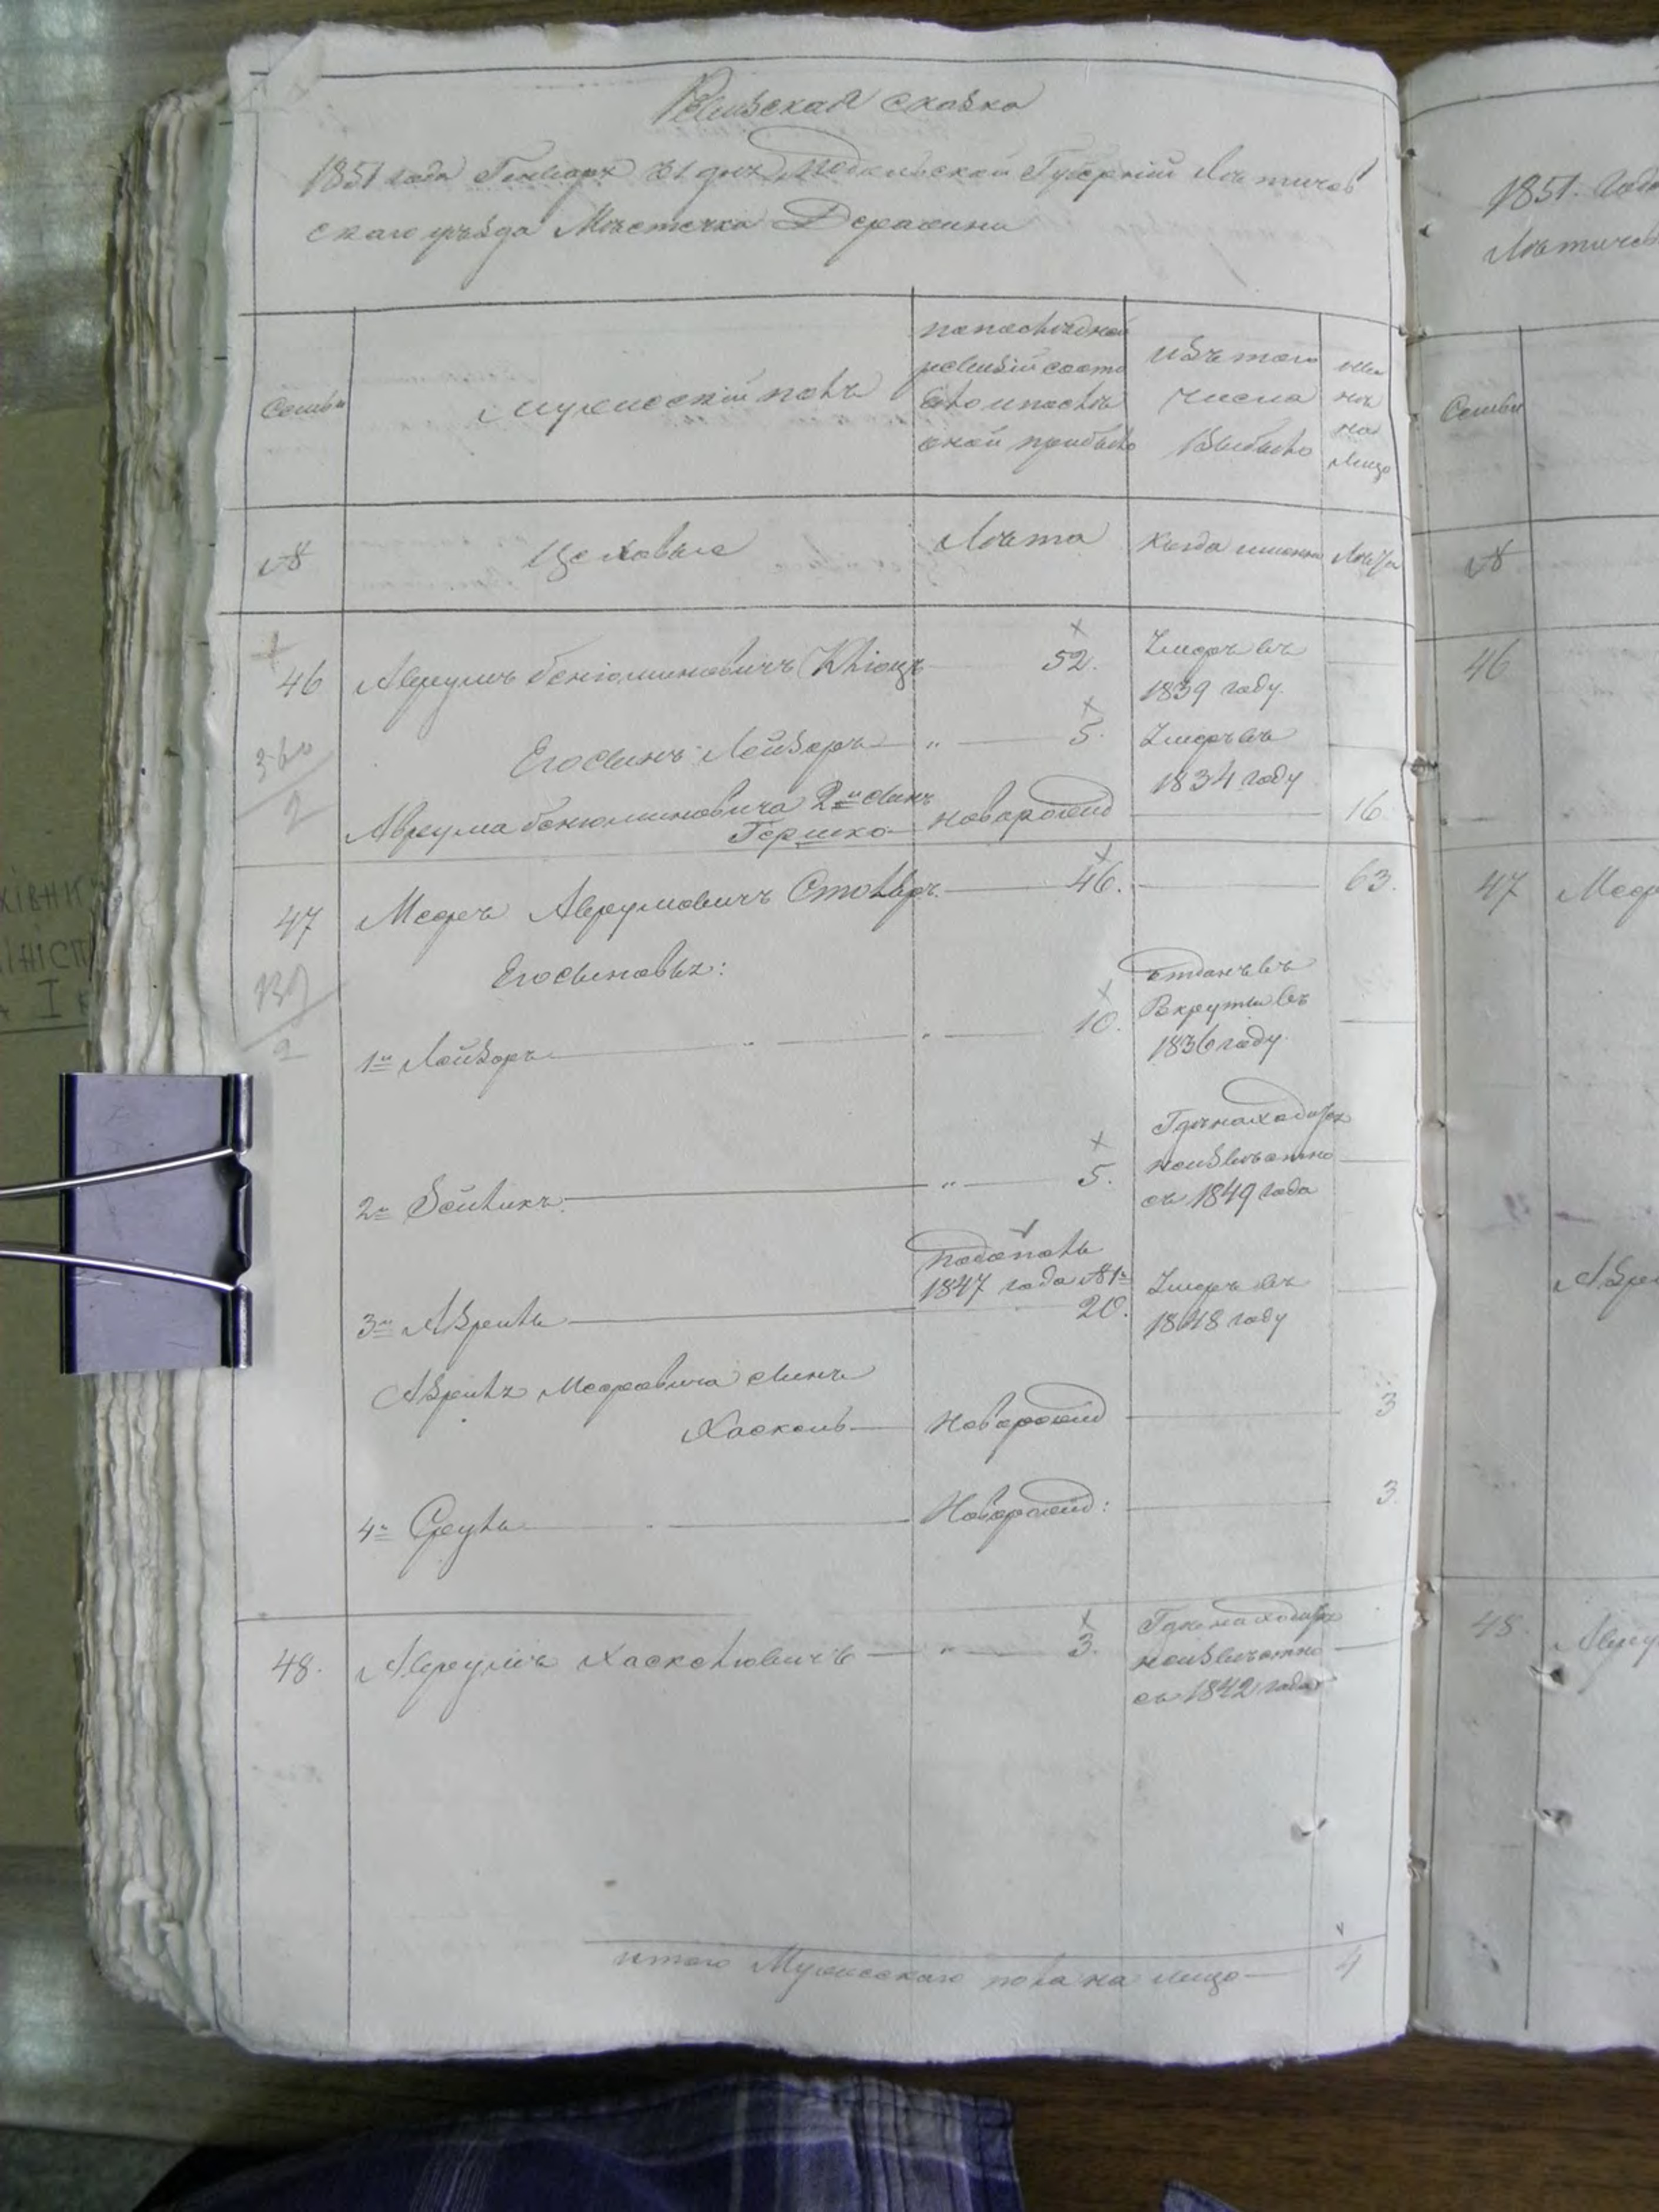 Ревизская сказка
1851 года Генваря 31 дня Подольской Губернии Летичев
скаго уѣзда Мѣстечка Деражни
Семьи
Мужескій полъ
по послѣдней
ревизіи состо
яло и послѣ
оной прибыло
изъ того
числа
выбыло
нынѣ
на
лицо
№
Цеховые
Лѣта
Когда именно
Лѣта
46
Аврумъ Бенюминовичъ Клюцъ
52.
Умеръ въ
1839 году.
360
2
Его сынъ Лейзоръ
„
5.
Умеръ въ
1834 году
Аврума Бенюминовича 2й сынъ
Гершко
новорожд
16
47
Мееръ Аврумовичъ Столяръ
46.
63.
139
2
Его сыновья:
1й Лейзоръ
„
10.
Отданъ въ
Рекруты въ
1836 году.
2й Зейликъ
„
5.
Где находится
неизвѣстно
съ 1849 года
3й Азриль
1847 года №1й
20.
Умеръ въ
1848 году
Азриля Мееровича сынъ
Хаскель
Новорожд
3
4й Сруль
Новорожд:
3.
48.
Аврумъ Хаскелювичъ
„
3.
Где находится
неизвѣстно
съ 1842 года
итого Мужескаго пола на лицо
4
1851. года
Летичев
Семьи
№
46
47
Меер
Азри
48.
Авру